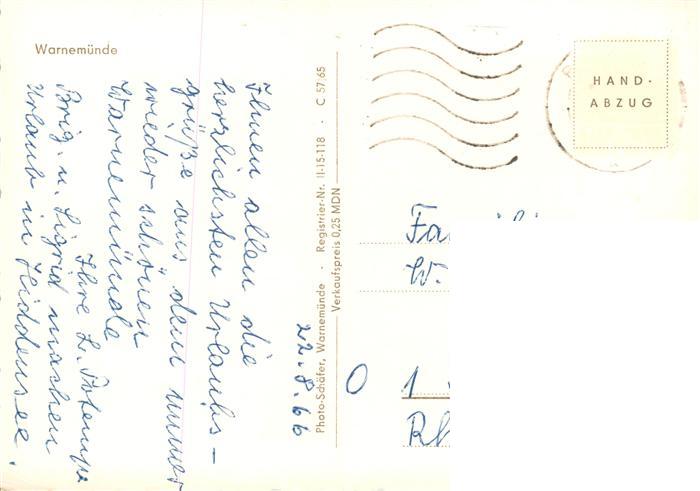 Warnemünde
Ihnen allen die
herzlichsten Urlaubs-
grüße aus dem immer
wieder schönen
Warnemünde
Ihre L.
Brig. u. Sigrid machen
Urlaub in Hiddensee.
22.8.66
Photo-Schäfer, Warnemünde · Registrier-Nr. II-15-118 · C 57/65
Verkaufspreis 0,25 MDN
HAND-
ABZUG
W.
O 1